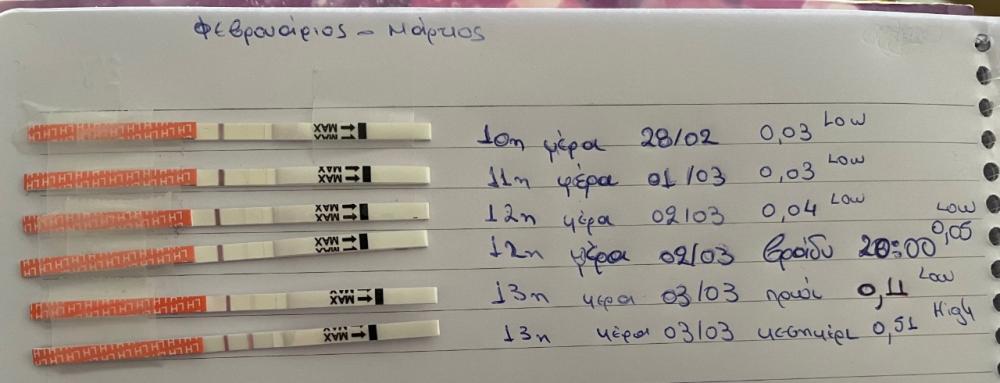 Φεβρουάριος - Μάρτιος
10η μέρα 28/02 0,03 Low
11η μέρα 01/03 0,03 Low
12η μέρα 02/03 0,04 Low
12η μέρα 02/03 βράδυ 20:00 0,05 Low
13η μέρα 03/03 πρωί 0,11 Low
13η μέρα 03/03 μεσημέρι 0,51 High
LHLHLHLHLHLHLH MAX
LHLHLHLHLHLHLH MAX
LHLHLHLHLHLHLH MAX
LHLHLHLHLHLHLH MAX
LHLHLHLHLHLHLH MAX
LHLHLHLHLHLHLH MAX